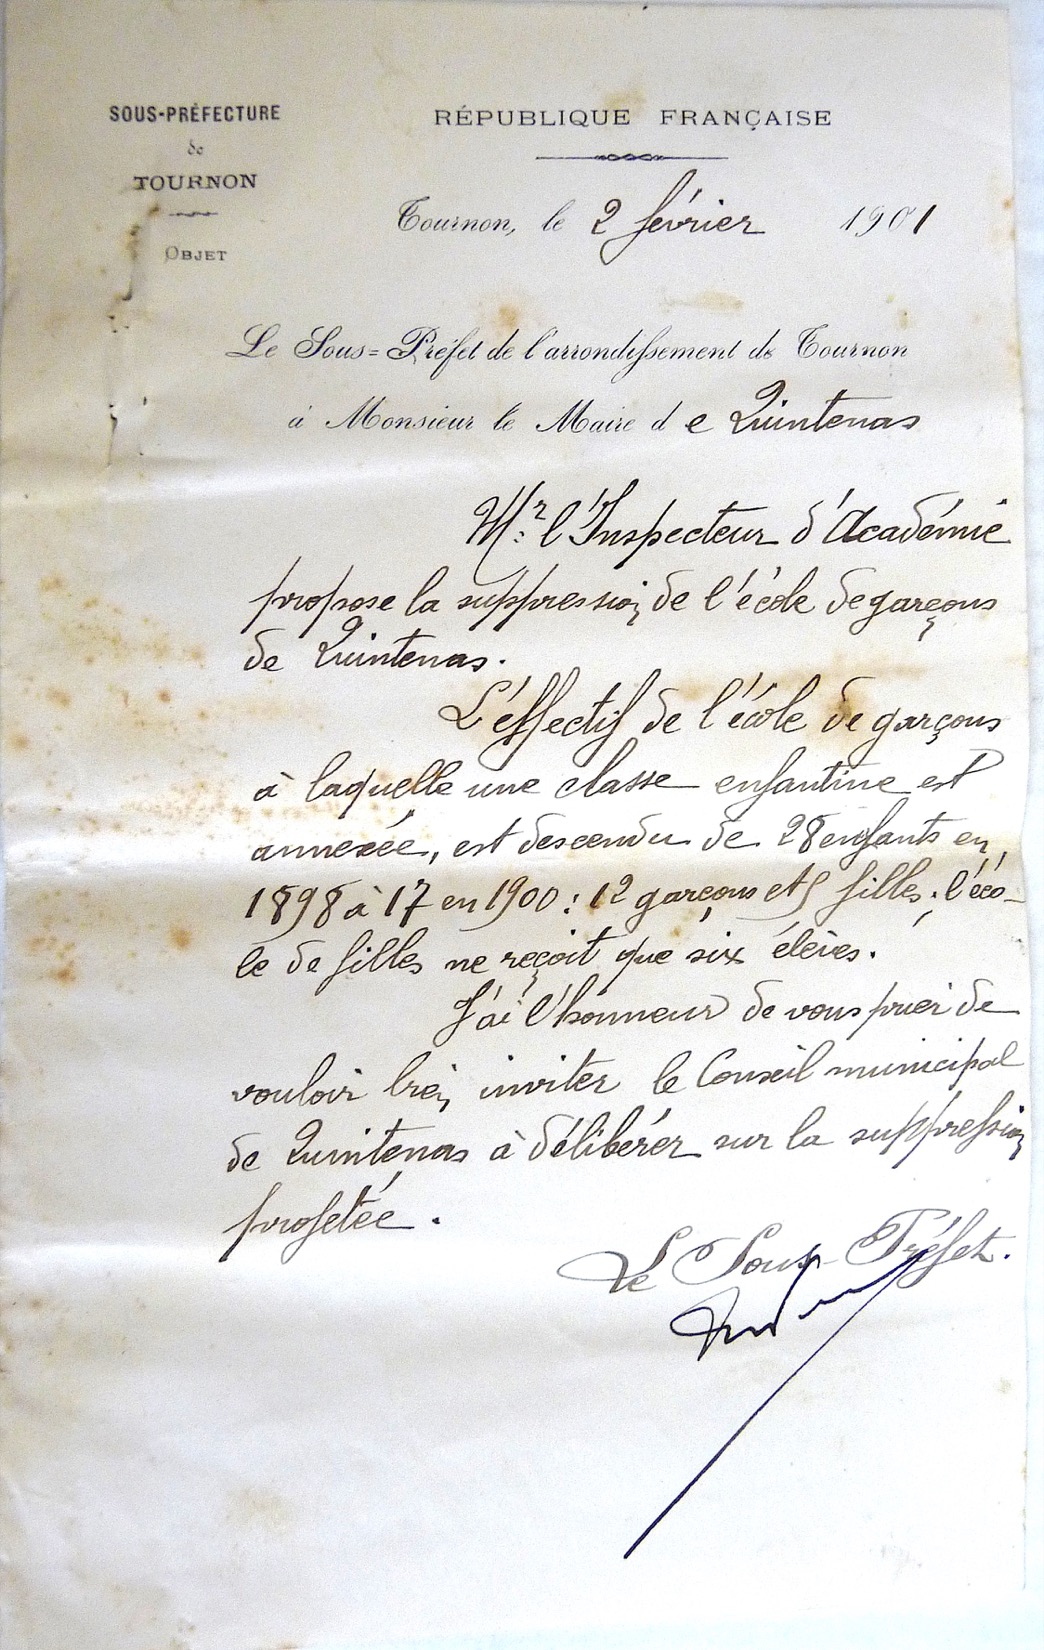 SOUS-PRÉFECTURE
de
TOURNON
OBJET
RÉPUBLIQUE FRANÇAISE
Tournon, le 2 février 1901
Le Sous=Préfet de l'arrondissement de Tournon
à Monsieur le Maire de Quintenas
Mr. l'Inspecteur d'Académie
propose la suppression de l'école de garçons
de Quintenas.
L'éffectif de l'école de garçons
à laquelle une classe enfantine est
annexée, est descendu de 28 enfants en
1898 à 17 en 1900 : 12 garçons et 5 filles ; l'éco-
le de filles ne reçoit que six élèves.
J'ai l'honneur de vous prier de
vouloir bien inviter le Conseil municipal
de Quintenas à délibérer sur la suppression
projetée.
Le Sous-Préfet.